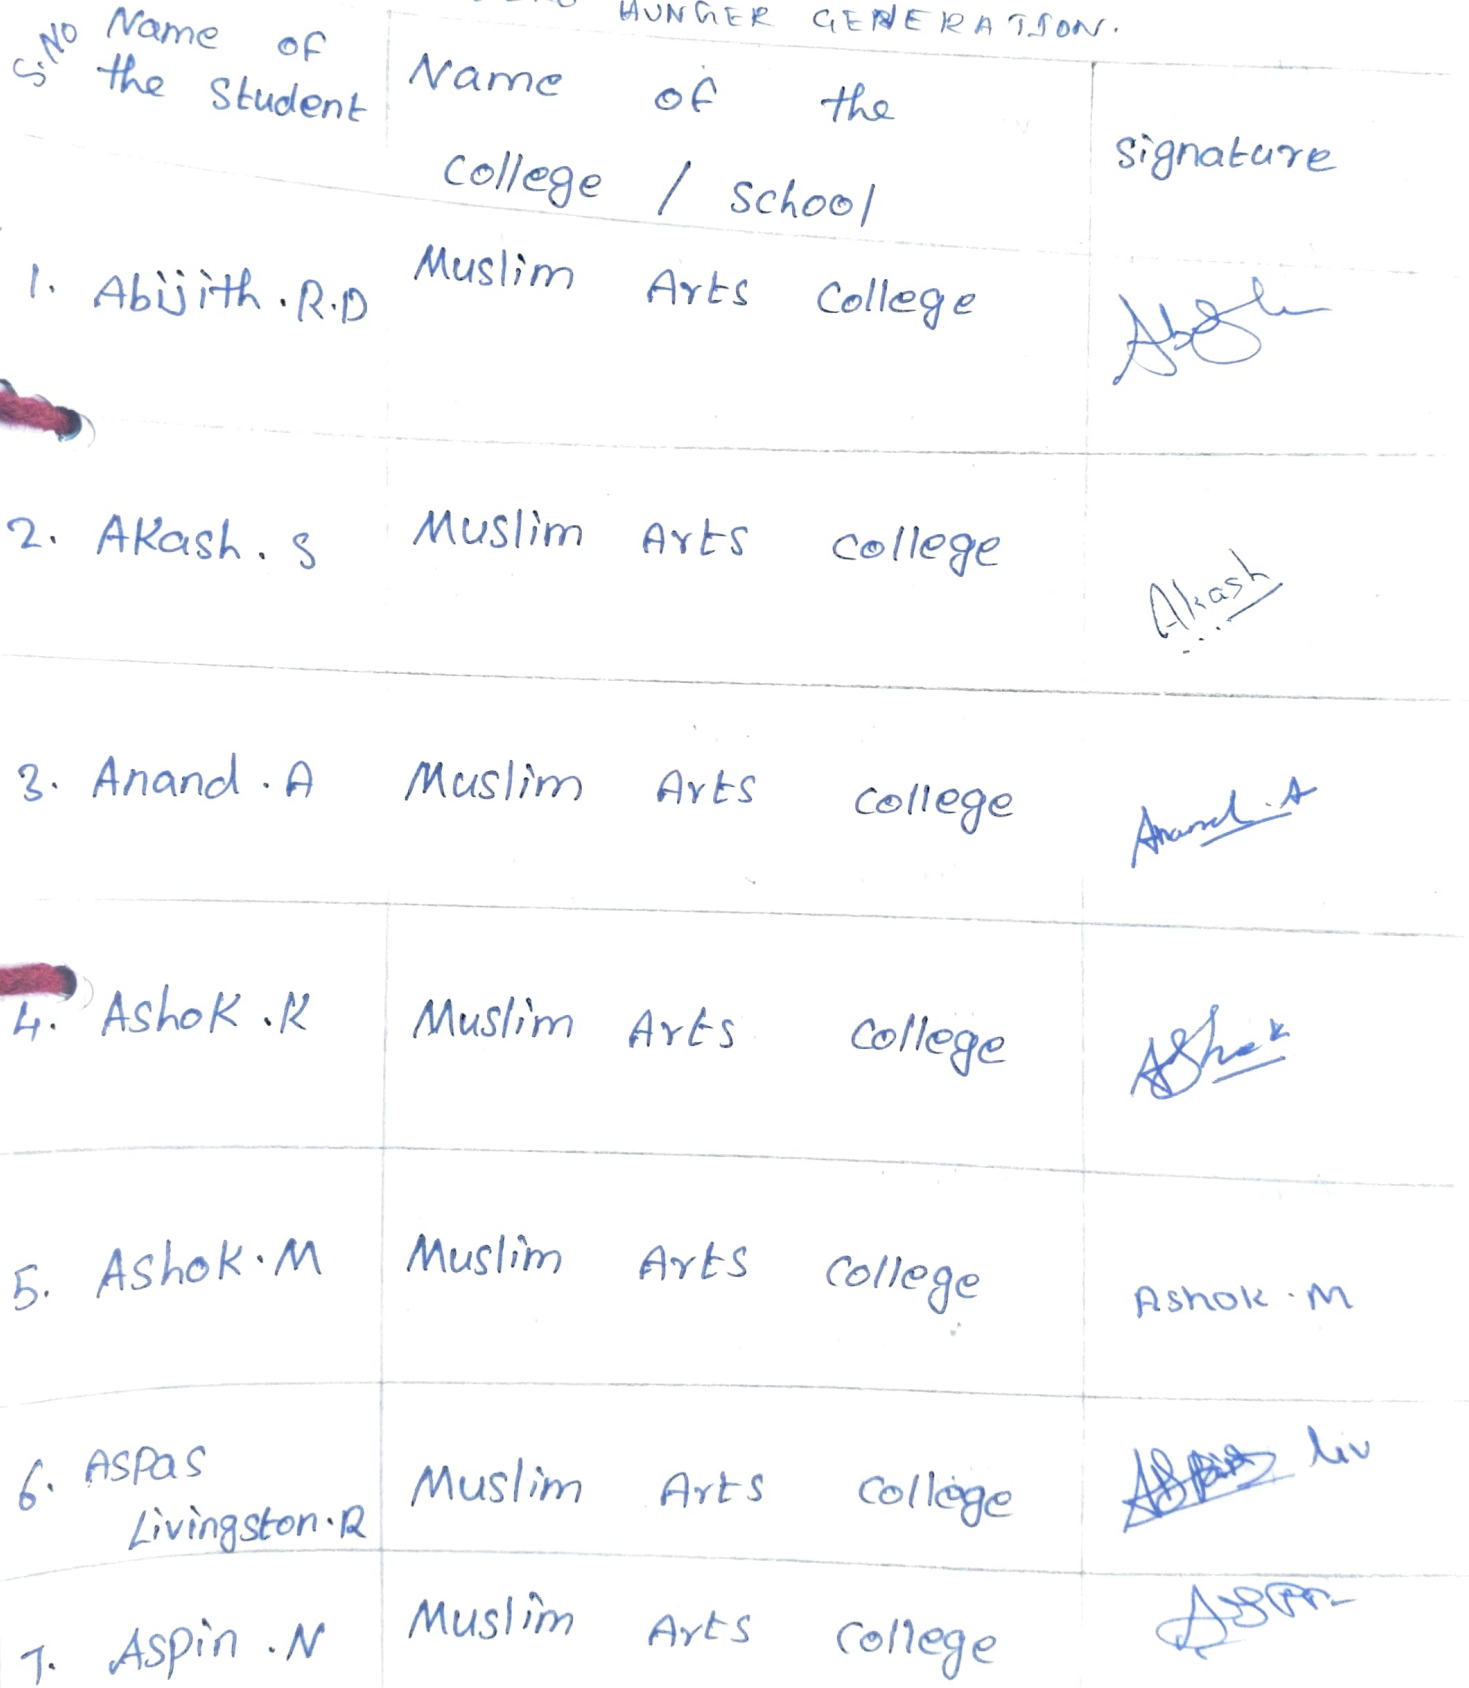 HUNGER GENERATION.
S.NO Name of the Student Name of the College / School Signature
1. Abijith.R.D Muslim Arts College
2. Akash.S Muslim Arts College Akash
3. Anand.A Muslim Arts College Anand.A
4. Ashok.K Muslim Arts College Ashok
5. Ashok.M Muslim Arts College Ashok.M
6. Aspas Livingston.R Muslim Arts College liv
7. Aspin.N Muslim Arts College